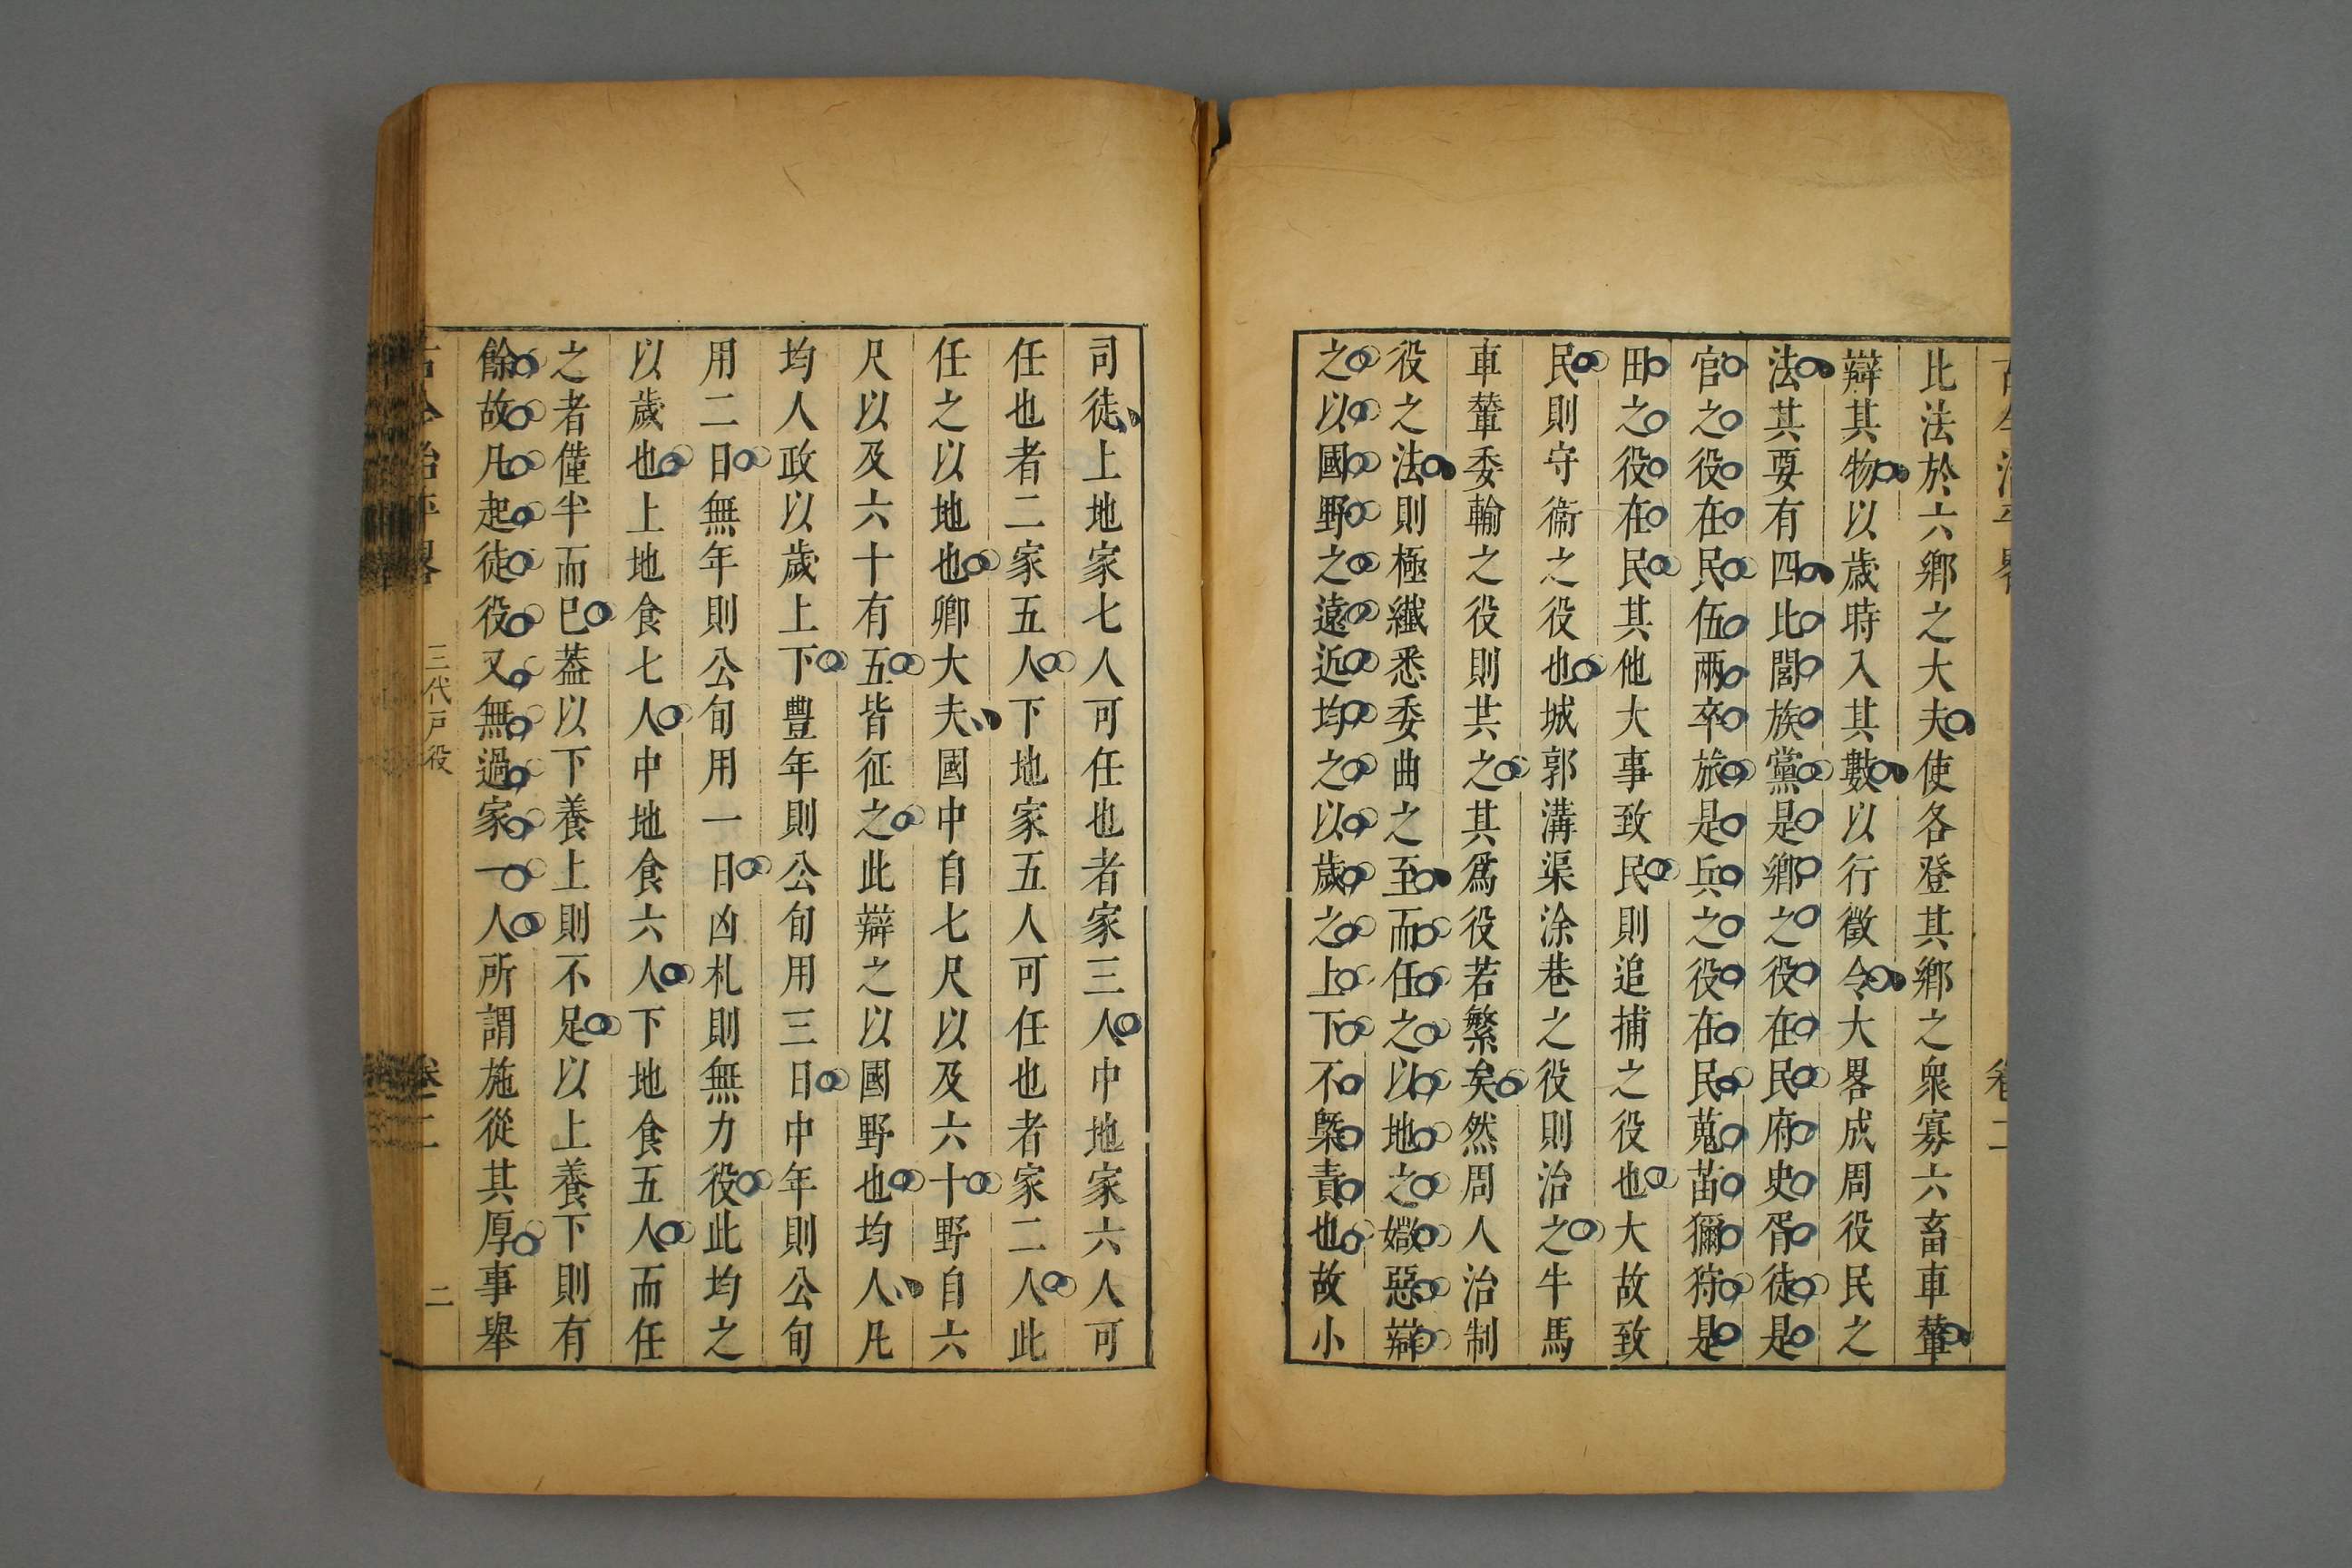 比法於六鄉之大夫使各登其鄉之衆寡六畜車輦
辯其物以歲時入其數以行徵令大畧成周役民之
法其要有四比閭族黨是鄉之役在民府史胥徒是
官之役在民伍兩卒旅是兵之役在民蒐苗獮狩是
田之役在民其他大事致民則追捕之役也大故致
民則守衞之役也城郭溝渠涂巷之役則治之牛馬
車輦委輸之役則共之其爲役若繁矣然周人治制
役之法則極纖悉委曲之至而任之以地之媺惡辯
之以國野之遠近均之以歲之上下不槩責也故小
司徒上地家七人可任也者家三人中地家六人可
任也者二家五人下地家五人可任也者家二人此
任之以地也鄉大夫國中自七尺以及六十野自六
尺以及六十有五皆征之此辯之以國野也均人凡
均人政以歲上下豐年則公旬用三日中年則公旬
用二日無年則公旬用一日凶札則無力役此均之
以歲也上地食七人中地食六人下地食五人而任
之者僅半而已葢以下養上則不足以上養下則有
餘故凡起徒役又無過家一人所謂施從其厚事舉
古今治平畧 三代戶役 卷二 二